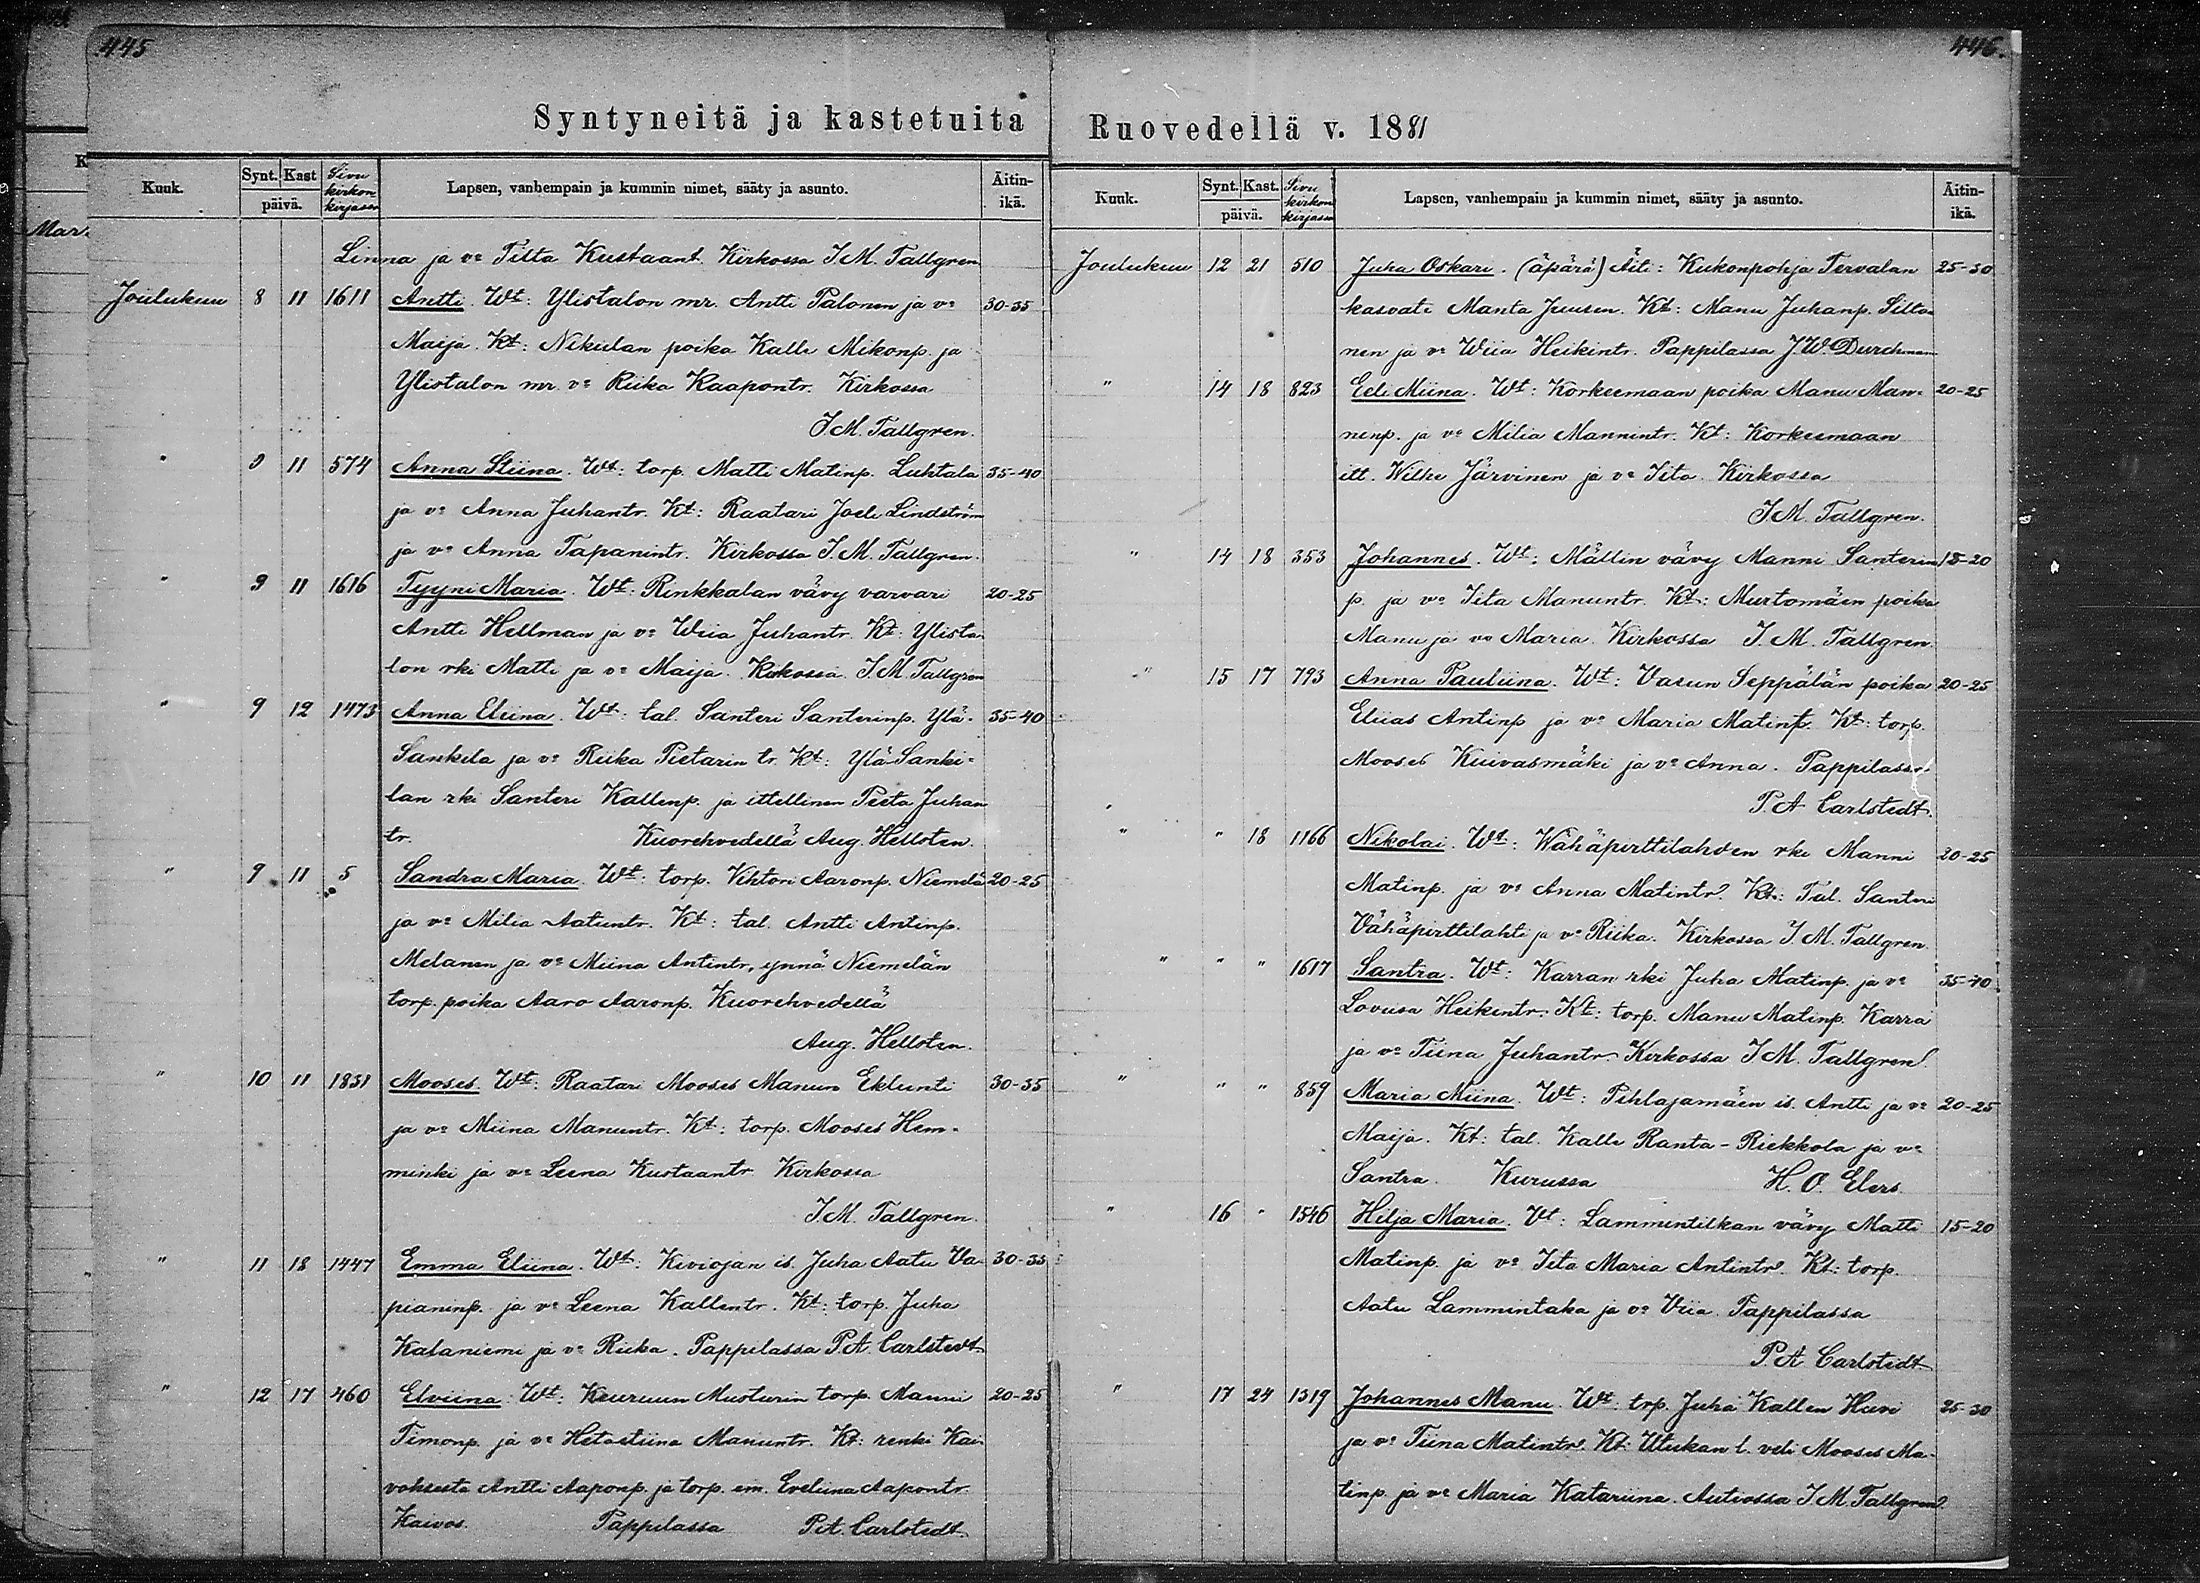 445
Syntyneitä ja kastetuita
Kuuk. Synt. Kast päivä. Sivu kirkon kirjassa Lapsen, vanhempain ja kummin nimet, sääty ja asunto. Äitin-ikä.
Linna ja vo Tilta Kustaant. Kirkossa J.M. Tallgren
Joulukuu 8 11 1611 Antti. Wt: Ylistalon mr. Antti Palonen ja vo 30-35
Maija. Kt: Nikulan poika Kalle Mikonp. ja
Ylistalon mr. vo Riika Kaapontr. Kirkossa
J.M. Tallgren.
" 9 11 574 Anna Stiina. Wt: torp. Matti Matinp. Luhtala 35-40
ja vo Anna Juhantr. Kt: Raatari Joeli Lindström
ja vo Anna Tapanintr. Kirkossa J.M. Tallgren.
" 9 11 1616 Tyyni Maria. Wt: Rinkkalan vävy varvari 20-25
Antti Hellman ja vo Wiia Juhantr. Kt: Ylista-
lon rki Matti ja vo Maija. Kirkossa. J.M. Tallgren
" 9 12 1473 Anna Eliina. Wt: tal. Santeri Santerinp. Ylä- 35-40
Sankila ja vo Riika Pietarin tr. Kt: Ylä-Sanki-
lan rki Santeri Kallenp. ja ittellinen Peeta Juhan
tr. Kuorehvedellä Aug. Hellsten.
" 9 11 5 Sandra Maria. Wt: torp. Vihtori Aaronp. Niemelä 20-25
ja vo Milia Aatuntr. Kt: tal. Antti Antinp.
Melanen ja vo Miina Antintr, ynnä Niemelän
torp. poika Aaro Aaronp. Kuorehvedellä
Aug. Hellsten.
" 10 11 1831 Mooses. Wt: Raatari Mooses Manun Eklunti 30-35
ja vo Miina Manuntr. Kt: torp. Mooses Hem-
minki ja vo Leena Kustaantr Kirkossa
J.M. Tallgren.
" 11 18 1447 Emma Eliina. Wt: Kiviojan is. Juha Aatu Va- 30-35
pianinp. ja vo Leena Kallentr. Kt: torp. Juha
Kalaniemi ja vo Riika. Pappilassa P.A. Carlstedt
" 12 17 460 Elviina. Wt: Keuruun Musturin torp. Manni 20-25
Timonp. ja vo Hetastiina Manuntr. Kt: renki Kai-
voksesta Antti Aaponp. ja torp. em. Eveliina Aapontr.
Kaivos. Pappilassa P.A. Carlstedt.
446.
Ruovedellä v. 1881
Kuuk. Synt. Kast. päivä. Sivu kirkon kirjassa Lapsen, vanhempain ja kummin nimet, sääty ja asunto. Äitin-ikä.
Joulukuu 12 21 510 Juha Oskari. (äpärä) Äiti: Kukonpohja Tervalan 25-30
kasvati Manta Juusen. Kt: Manu Juhanp. Silta-
nen ja vo Wiia Heikintr. Pappilassa J.W. Durchman
" 14 18 823 Eeli Miina. Wt: Korkeemaan poika Manu Man- 20-25
nenp. ja vo Milia Mannintr. Kt: Korkeemaan
itt. Wilhe Järvinen ja vo Iita. Kirkossa
J.M. Tallgren.
" 14 18 353 Johannes. Wt: Mällin vävy Manni Santerin 15-20
p. ja vo Iita Manuntr. Kt: Murtomäen poika
Manu ja vo Maria. Kirkossa J.M. Tallgren.
" 15 17 793 Anna Pauliina. Wt: Vasun Seppälän poika 20-25
Eliias Antinp ja vo Maria Matint. Kt: torp.
Mooses Kuivasmäki ja vo Anna. Pappilassa
P.A. Carlstedt.
" " 18 1166 Nikolai. Wt: Wähäpirttilahden rki Manni 20-25
Matinp. ja vo Anna Matintr. Kt: Tal. Santeri
Vähäpirttilahti ja vo Riika. Kirkossa J.M. Tallgren.
" " " 1617 Santra. Wt: Karran rki Juha Matinp. ja vo 35-40
Lovusa Heikintr. Kt: torp. Manu Matinp. Karra
ja vo Tiina Juhantr. Kirkossa J.M. Tallgren.
" " " 859 Maria Miina. Wt: Pihlajamäen is. Antti ja vo 20-25
Maija. Kt: tal. Kalle Ranta-Riekkola ja vo
Santra. Kurussa H.O. Elers
" 16 " 1546 Hilja Maria. Vt: Lammintilkan vävy Matti 15-20
Matinp. ja vo Iita Maria Antintr. Kt: torp.
Aatu Lammintaka ja vo Viia. Pappilassa
P.A. Carlstedt
" 17 24 1319 Johannes Manu. Wt: trp. Juha Kallen Huvi 25-30
ja vo Tiina Matintr. Kt: Utukan l. veli Mooses Ma-
tinp. ja vo Maria Katariina. Autiossa J.M. Tallgren.